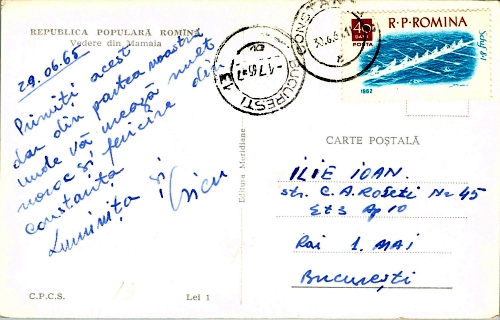 REPUBLICA POPULARA ROMÎNA
Vedere din Mamaia
29.06.65
Primiți acest
dar din partea noastră
unde vă urează mult
noroc și fericire din
Constanța
Luminița și Nicu
C.P.C.S.
Lei 1
Editura Meridiane
CONSTANȚA
BUCUREȘTI
R.P. ROMINA
40
BANI
POSTA
1962
CARTE POȘTALĂ
ILIE IOAN.
str. C. A. Rosetti Nr 45
Et 3 Ap 10
Rai 1. MAI
București